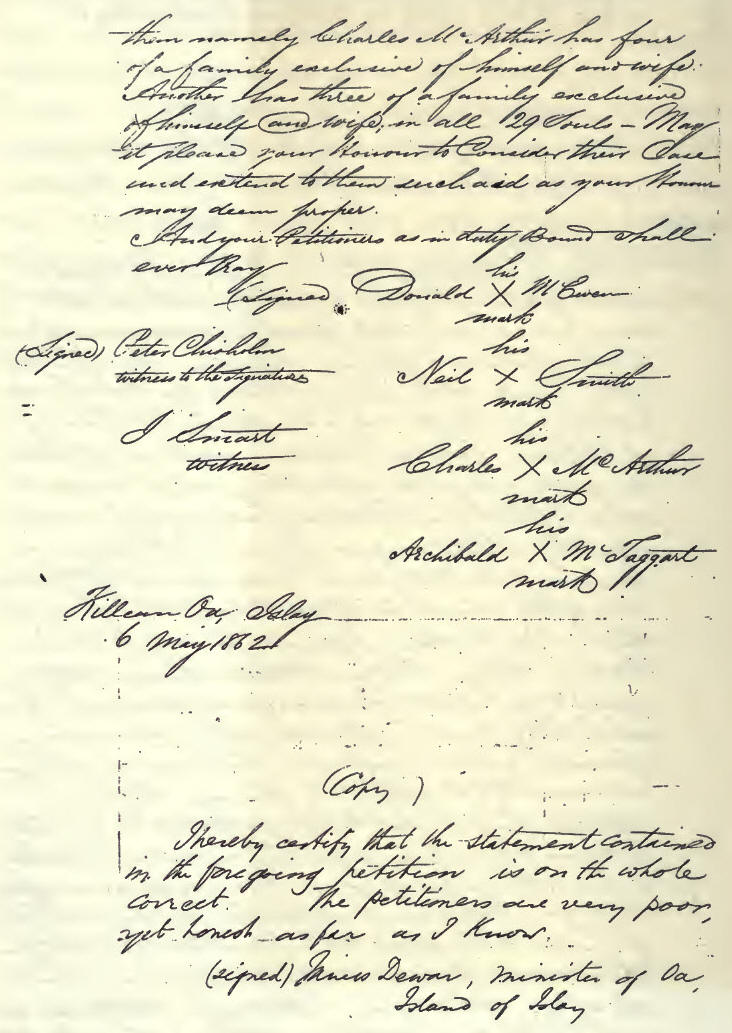 them namely Charles McArthur has four
of a family exclusive of himself and wife.
Another has three of a family exclusive
of himself and wife, in all 29 Souls - May
it please your Honour to Consider their Case
and extend to them such aid as your Honour
may deem proper.
And your Petitioners as in duty Bound shall
ever Pray
his
(Signed Donald X McEwen
mark
(Signed) Peter Chisholm
witness to the Signature
his
Neil X Smith
mark
I Smart
witness
his
Charles X McArthur
mark
his
Archibald X McTaggart
mark
Killean Oa, Islay
6 May 1862
(Copy)
I hereby certify that the statement contained
in the foregoing petition is on the whole
correct. The petitioners are very poor,
yet honest as far as I Know.
(signed) Dewar, minister of Oa,
Island of Islay